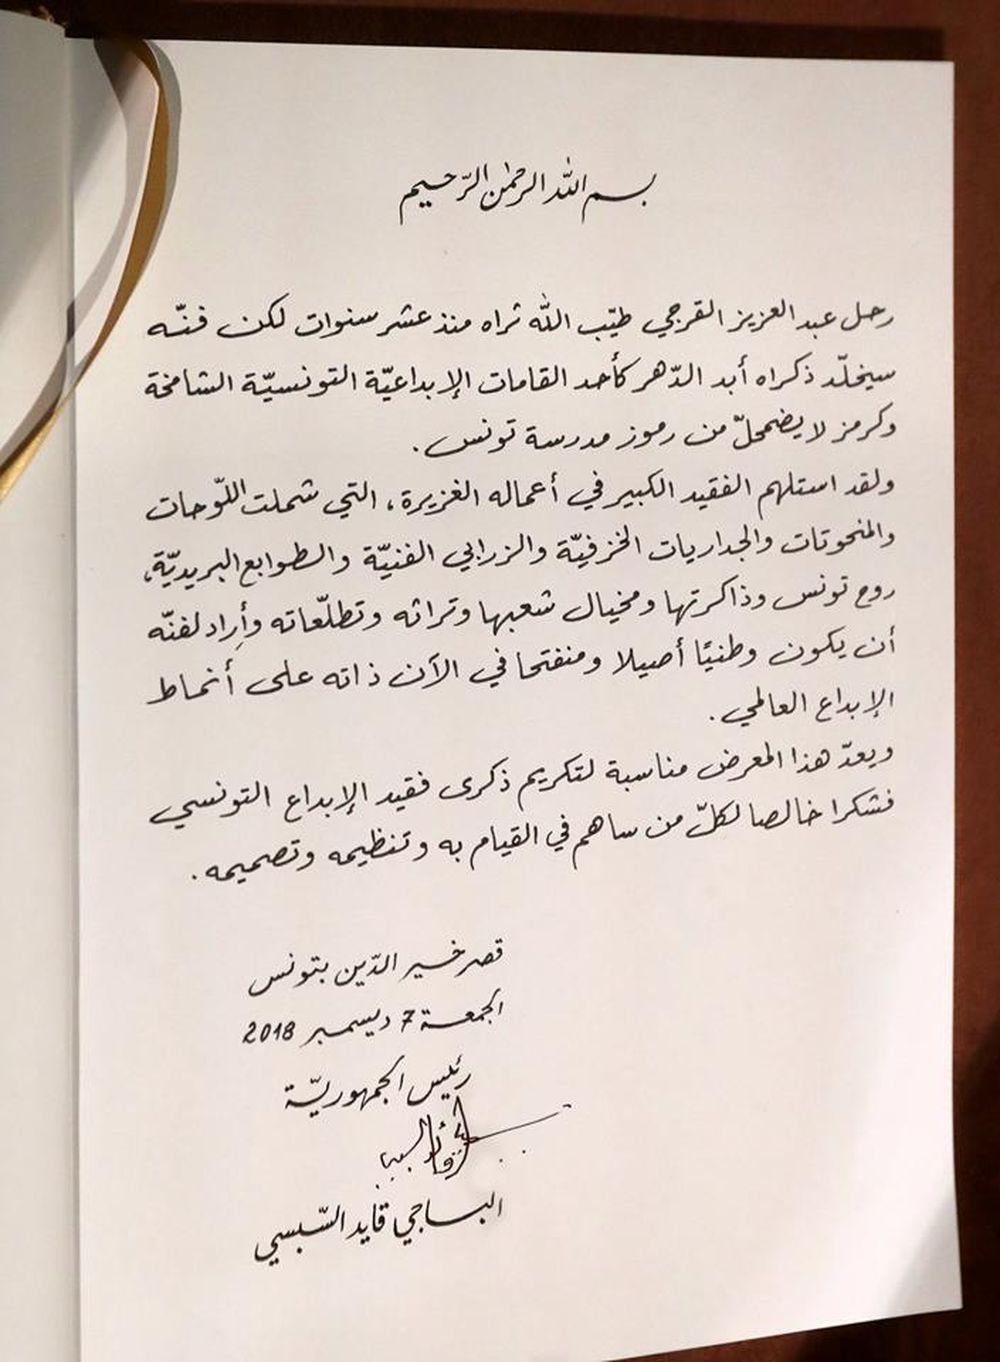 بسم الله الرحمٰن الرّحيم
رحل عبد العزيز القرجي طيّب الله ثراه منذ عشر سنوات لكن فنّه
سيخلّد ذكراه أبد الدّهر كأحد القامات الإبداعيّة التونسيّة الشامخة
وكرمز لا يضمحلّ من رموز مدرسة تونس.
ولقد استلهم الفقيد الكبير في أعماله الغزيرة، التي شملت اللّوحات
والمنحوتات والجداريات الخزفيّة والزرابي الفنيّة والطوابع البريديّة،
روح تونس وذاكرتها ومخيال شعبها وتراثه وتطلّعاته وأراد لفنّه
أن يكون وطنيًا أصيلا ومنفتحا في الآن ذاته على أنماط
الإبداع العالمي.
ويعدّ هذا المعرض مناسبة لتكريم ذكرى فقيد الإبداع التونسي
فشكرا خالصا لكلّ من ساهم في القيام به وتنظيمه وتصميمه.
قصر خير الدّين بتونس
الجمعة 7 ديسمبر 2018
رئيس الجمهوريّة
الباجي قايد السّبسي